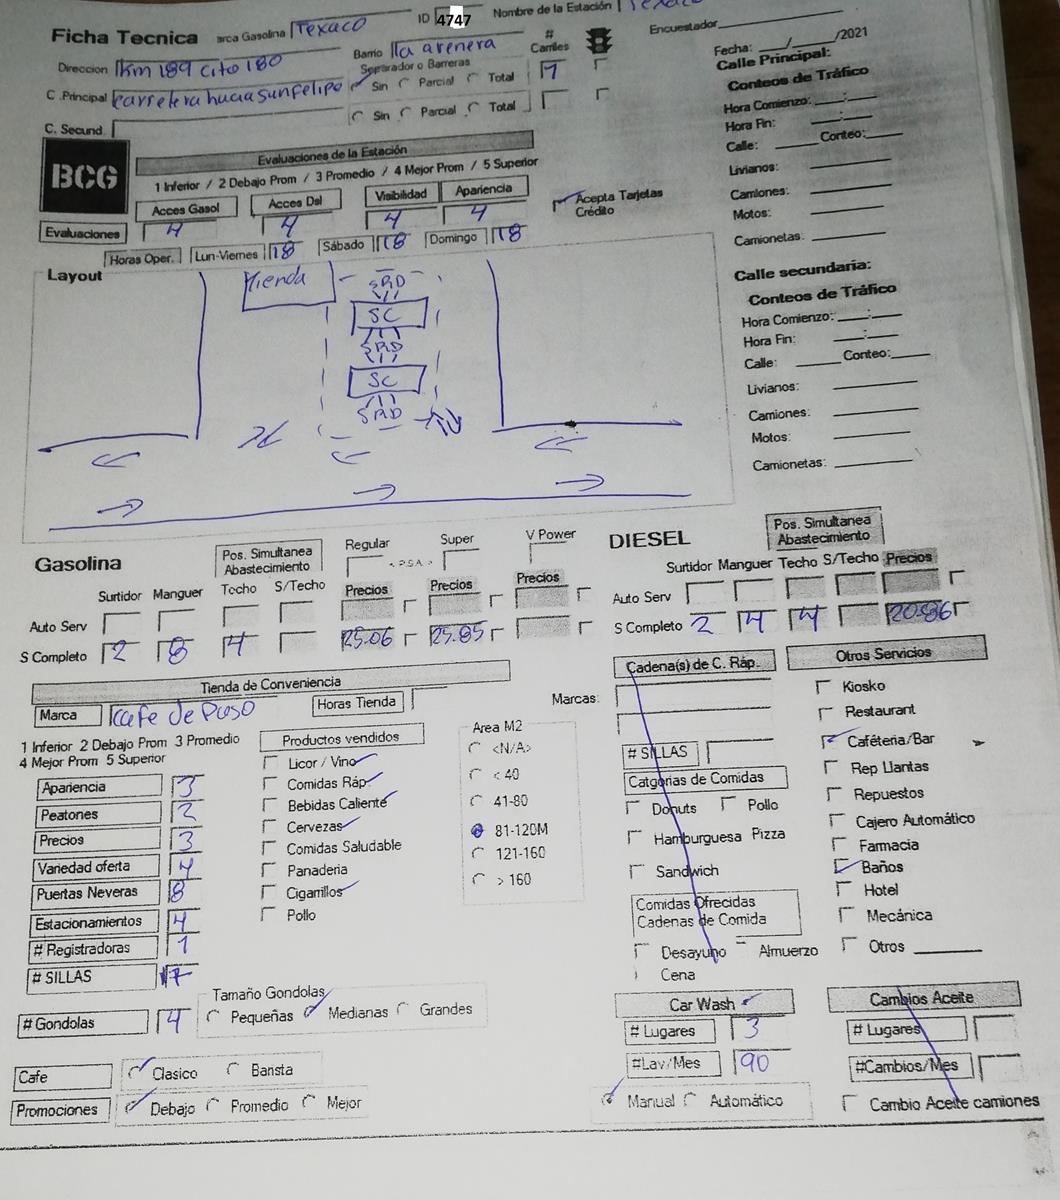 Ficha Tecnica arca Gasolina Texaco ID 4747 Nombre de la Estación Texaco
Encuestador
Direccion km 189 cito 180 Barrio la arenera # Carriles
Separador o Barreras
C .Principal carretera hacia sunfelipo Sin Parcial Total 1
Sin Parcial Total
C. Secund.
Fecha: ___/___/2021
Calle Principal:
Conteos de Tráfico
Hora Comienzo: ___:___
Hora Fin: ___:___
Calle: Conteo:
Livianos:
Camiones:
Motos:
Camionetas:
BCG
Evaluaciones de la Estación
1 Inferior / 2 Debajo Prom / 3 Promedio / 4 Mejor Prom / 5 Superior
Acces Gasol Acces Dsl Visibilidad Apariencia Acepta Tarjetas Crédito
Evaluaciones 4 4 4 4
Horas Oper. Lun-Viernes 18 Sábado 18 Domingo 18
Layout
Tienda
SRD
SC
SRD
SC
SRD
Calle secundaria:
Conteos de Tráfico
Hora Comienzo: ___:___
Hora Fin: ___:___
Calle: Conteo:
Livianos:
Camiones:
Motos:
Camionetas:
Gasolina Pos. Simultanea Abastecimiento Regular Super V Power
< P.S.A. >
Surtidor Manguer Techo S/Techo Precios Precios Precios
Auto Serv
S Completo 2 8 4 25.06 25.85
DIESEL Pos. Simultanea Abastecimiento
Surtidor Manguer Techo S/Techo Precios
Auto Serv
S Completo 2 4 4 20.86
Tienda de Conveniencia
Marca cafe de Paso Horas Tienda
1 Inferior 2 Debajo Prom 3 Promedio
4 Mejor Prom 5 Superior
Apariencia 3
Peatones 2
Precios 3
Variedad oferta 4
Puertas Neveras 8
Estacionamientos 4
# Registradoras 1
# SILLAS 7
# Gondolas 4
Productos vendidos
Licor / Vino
Comidas Ráp
Bebidas Caliente
Cervezas
Comidas Saludable
Panaderia
Cigarrillos
Pollo
Area M2
<N/A>
< 40
41-80
81-120M
121-160
> 160
Tamaño Gondolas
Pequeñas Medianas Grandes
Cafe Clasico Barista
Promociones Debajo Promedio Mejor
Cadena(s) de C. Ráp.
Marcas:
# SILLAS
Catgorias de Comidas
Donuts Pollo
Hamburguesa Pizza
Sandwich
Comidas Ofrecidas
Cadenas de Comida
Desayuno Almuerzo
Cena
Otros Servicios
Kiosko
Restaurant
Caféteria/Bar
Rep Llantas
Repuestos
Cajero Automático
Farmacia
Baños
Hotel
Mecánica
Otros
Car Wash
# Lugares 3
#Lav/Mes 90
Manual Automático
Cambios Aceite
# Lugares
#Cambios/Mes
Cambio Aceite camiones